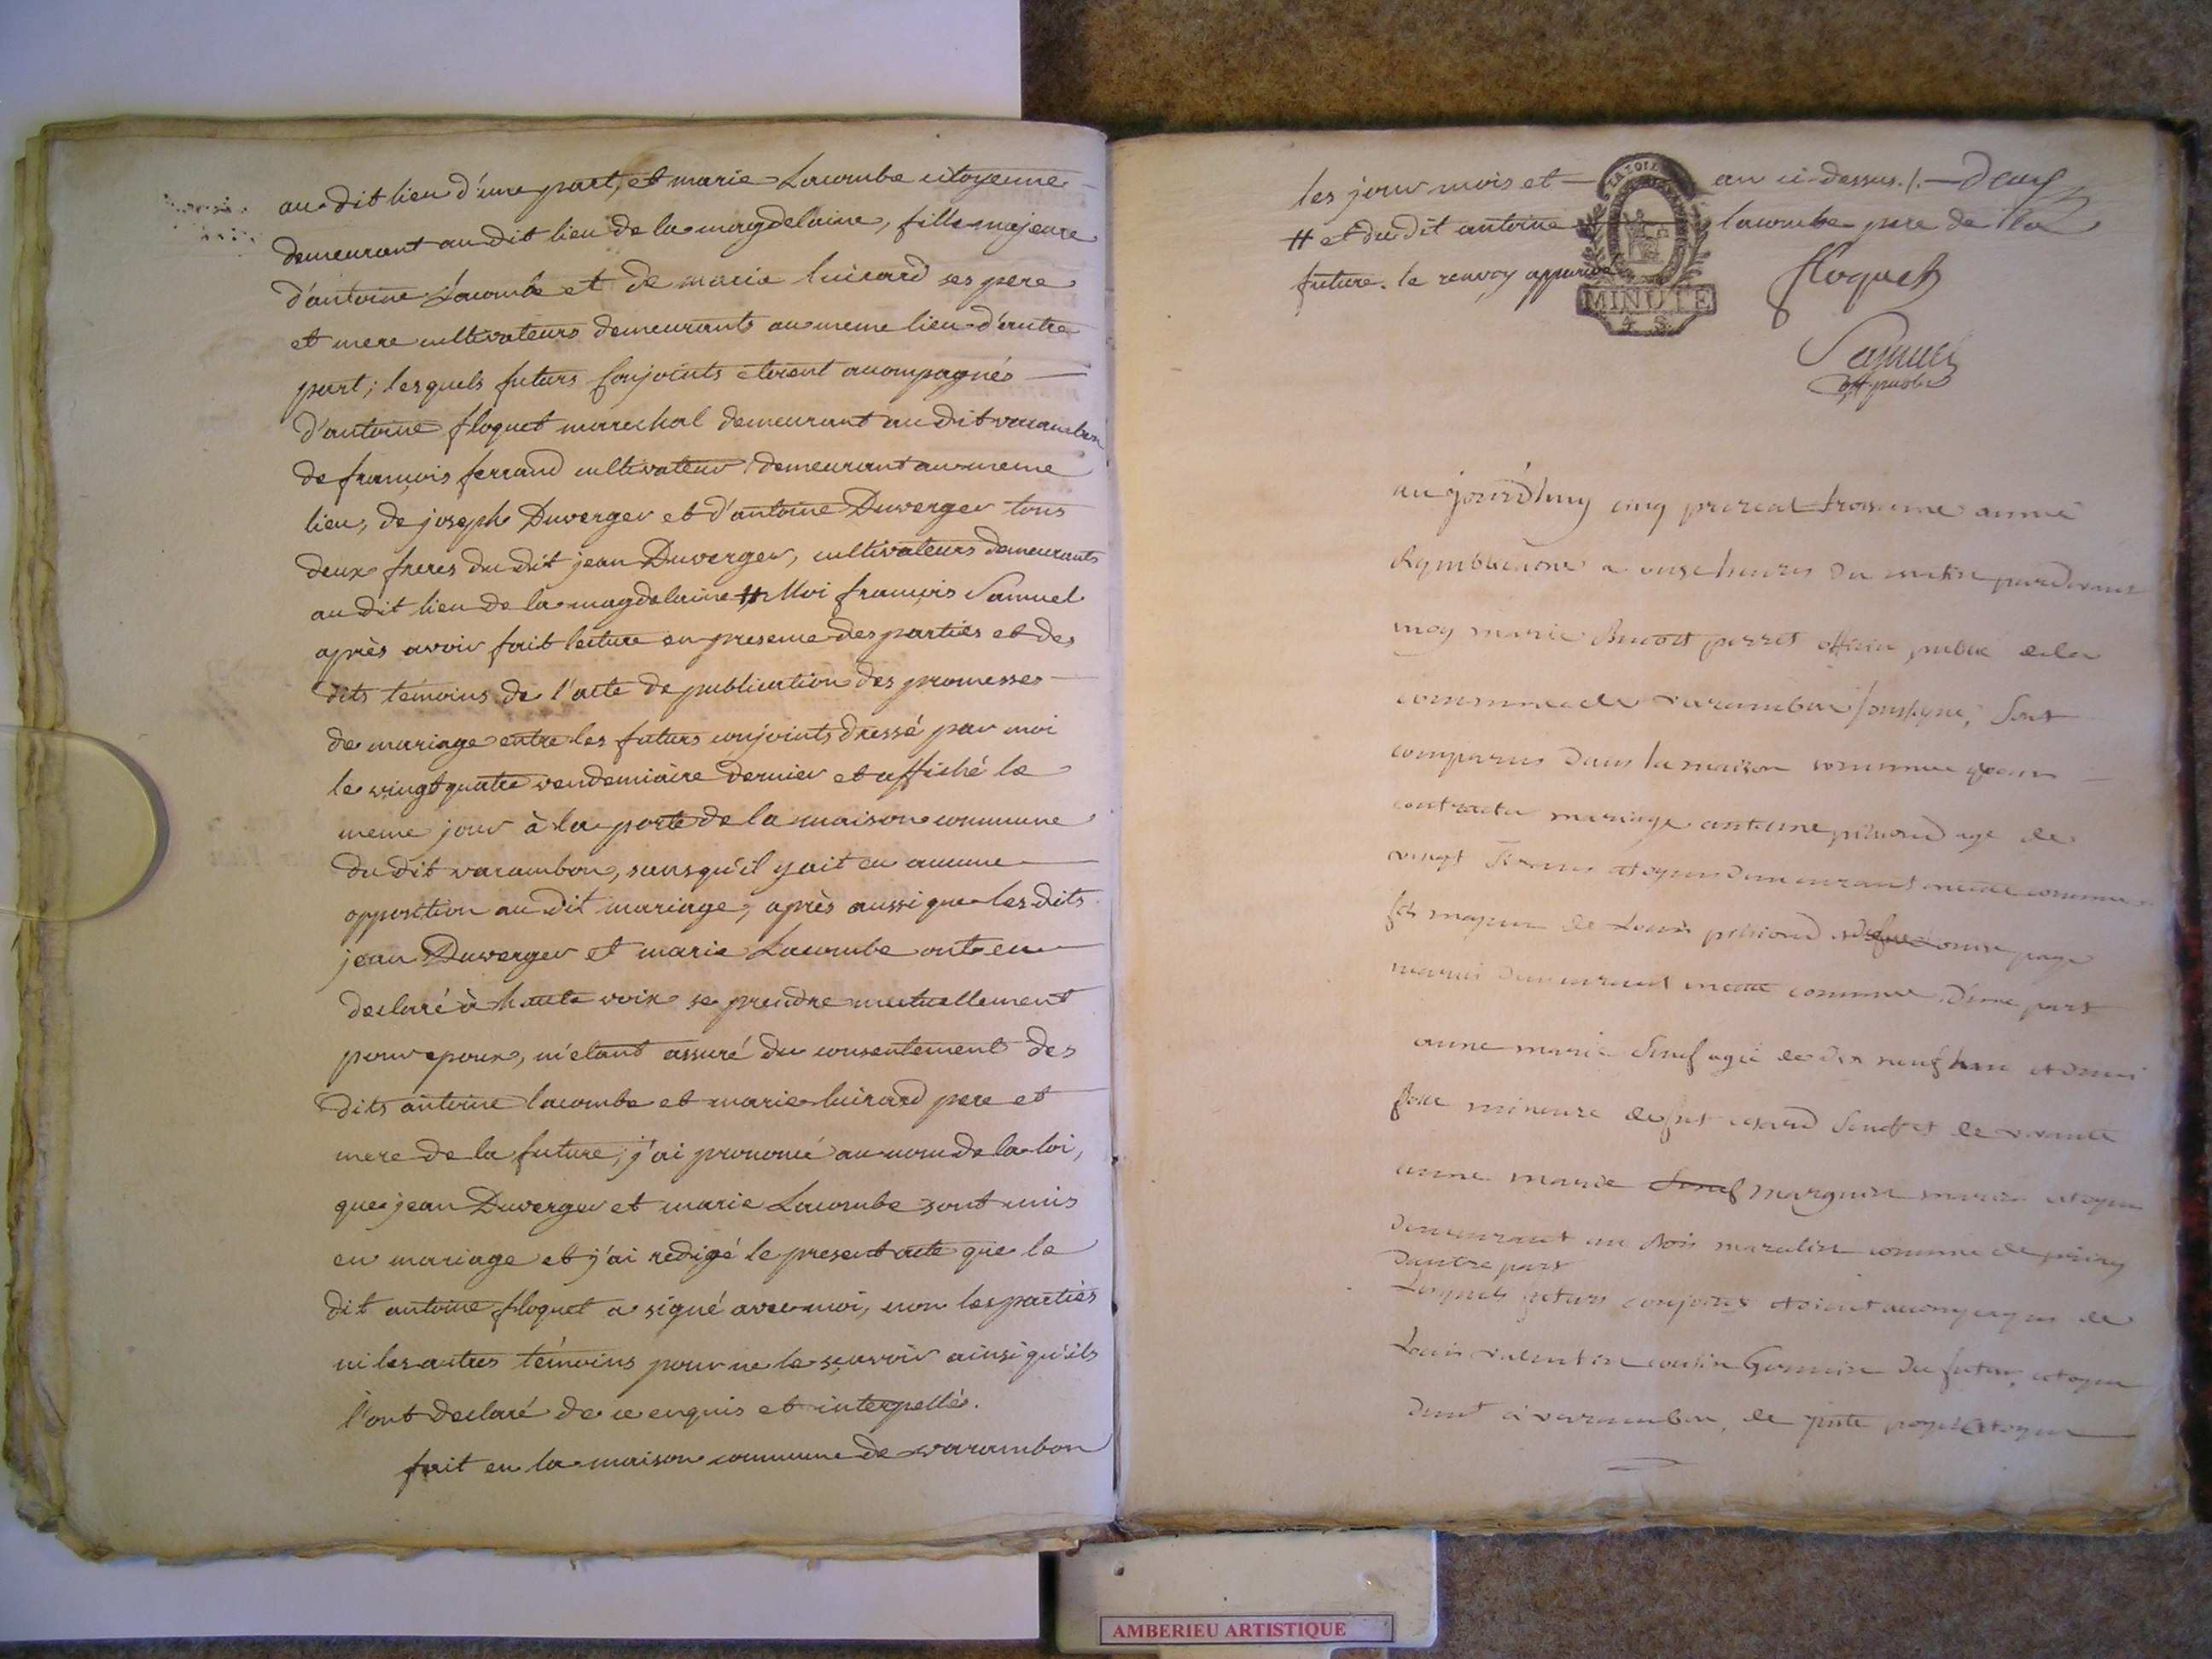 au dit lieu d'une part, et marie Lacombe citoyenne
demeurant au dit lieu de la magdelaine, fille majeure
d'antoine Lacombe et de marie luirard ses pere
et mere cultivateurs demeurants au meme lieu d'autre
part; lesquels futurs conjoints etoient acompagnés
d'antoine floquet marechal demeurant au dit varambon
de françois ferrand cultivateur demeurant au meme
lieu, de joseph Duverger et d'antoine Duverger tous
deux freres du dit jean Duverger, cultivateurs demeurants
au dit lieu de la magdelaine # Moi françois Samuel
après avoir fait lecture en presence des parties et des
dits témoins de l'acte de publication des promesses
de mariage entre les futurs conjoints dressé par moi
le vingt quatre vendemiaire dernier et affiché le
meme jour à la porte de la maison commune
du dit varambon, sans qu'il y ait eu aucune
opposition au dit mariage; après aussi que les dits
jean Duverger et marie Lacombe ont eu
declaré à haute voix se prendre mutuellement
pour epoux, m'etant assuré du consentement des
dits antoine lacombe et marie luirard pere et
mere de la future, j'ai prononcé au nom de la loi,
que jean Duverger et marie Lacombe sont unis
en mariage et j'ai redigé le present acte que le
dit antoine floquet a signé avec moi, non les parties
ni les autres témoins pour ne le sçavoir ainsi qu'ils
l'ont declaré de ce enquis et interpellés.
fait en la maison commune de varambon
les jour mois et an ci-dessus ./.
# et du dit antoine lacombe pere de la
future. le renvoy approuvé
MINUTE
4 S
floquet
Samuel
off. public
aujourd'huy cinq prereal troisieme année
Republicaine a onze heures du matin pardevant
moy marie Benoit perret officier public de la
commune de varambon soussigne, sont
comparus dans la maison commune pour
contracter mariage antoine age de
vingt citoyen demeurant en cette commune
fils majeur de Louis et Louise page
mariés demeurant en cette commune d'une part
anne marie agée de dix neuf ans et demi
fille mineure de fut et de vivante
anne marie citoyen
demeurant au Bois commune de
d'autre part
Lesquels futurs conjoints etoient accompagnes de
Louis valentin cousin Germain du futur, citoyen
dem.t a varambon, de citoyen
AMBERIEU ARTISTIQUE